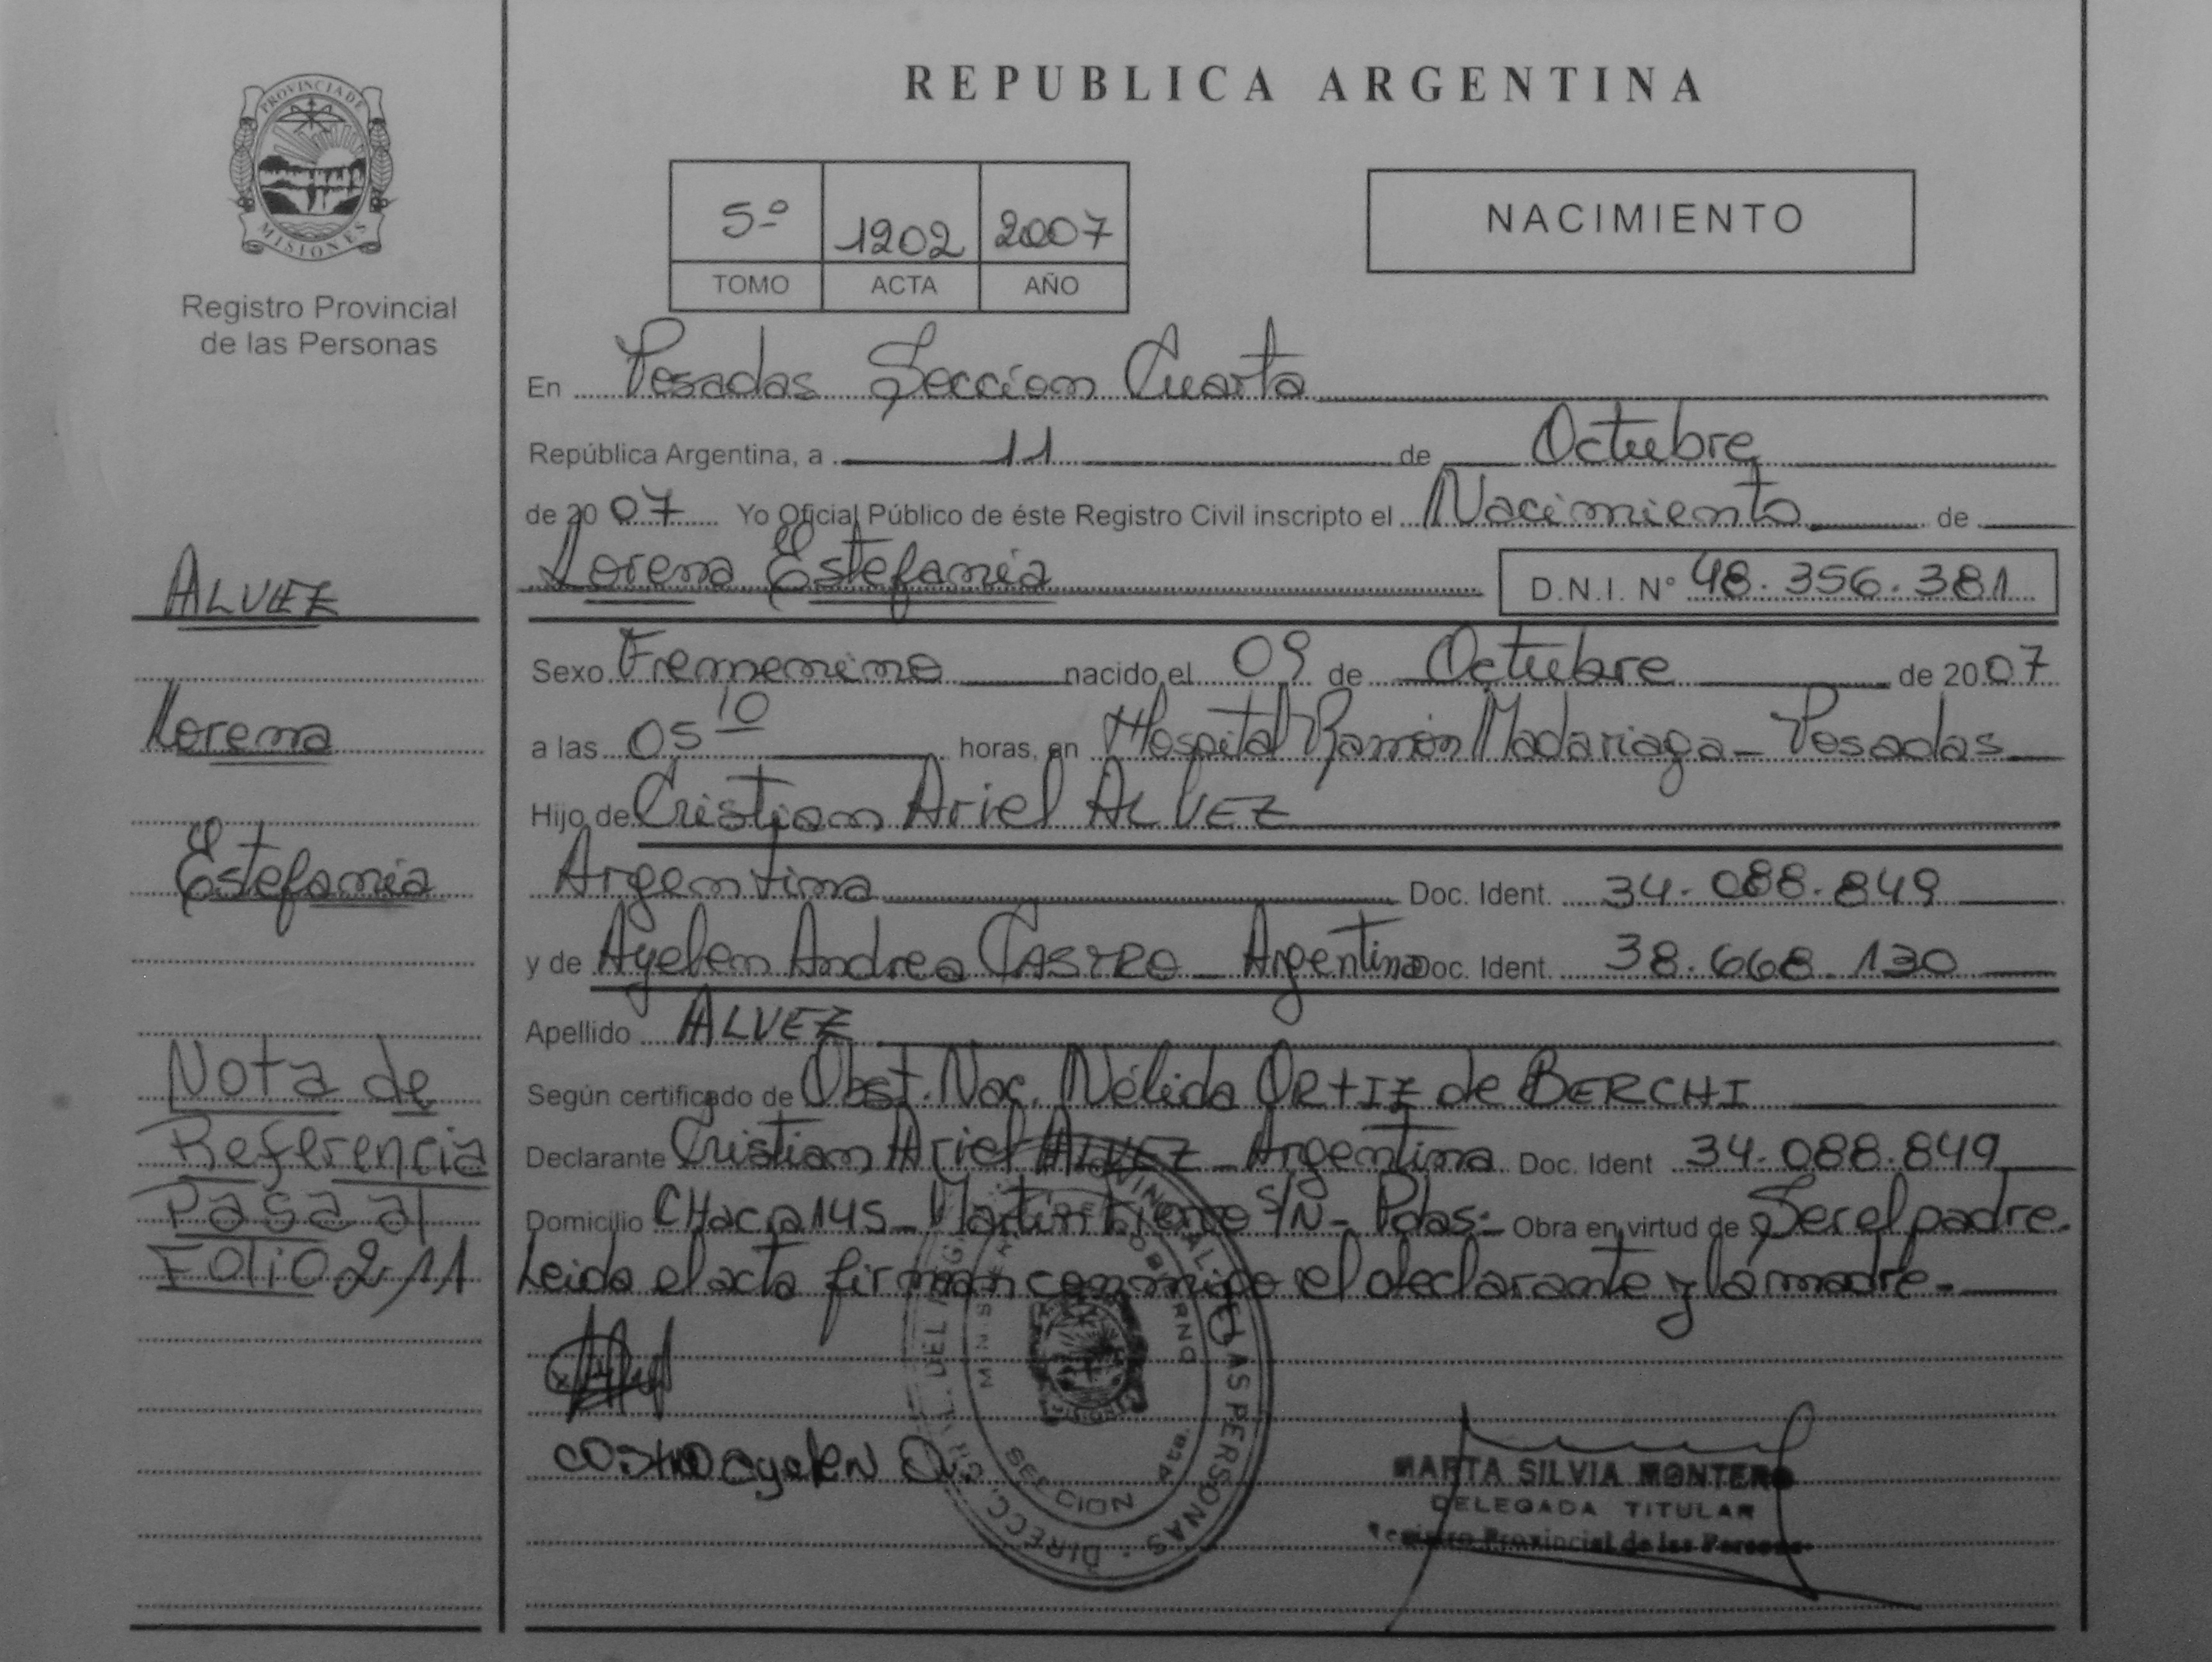 PROVINCIA DE
MISIONES
Registro Provincial
de las Personas
ALVEZ
Lorena
Estefania
Nota de
Referencia
Pasa al
FOLIO 2/11
REPUBLICA ARGENTINA
5º 1202 2007
TOMO ACTA AÑO
NACIMIENTO
En Posadas Seccion Cuarta
República Argentina, a 11 de Octubre
de 2007 Yo Oficial Público de éste Registro Civil inscripto el Nacimiento de
Lorena Estefania D.N.I. Nº 48.356.381
Sexo Femenino nacido el 09 de Octubre de 2007
a las 05 10 horas, en Hospital Ramón Madariaga - Posadas
Hijo de Cristian Ariel ALVEZ
Argentina Doc. Ident. 34.088.849
y de Ayelen Andrea CASTRO - Argentina Doc. Ident. 38.668.130
Apellido ALVEZ
Según certificado de Obst. Nac. Nélida ORTIZ de BERCHI
Declarante Cristian Ariel ALVEZ - Argentina Doc. Ident 34.088.849
Domicilio CHacra 145 - Martin Fierro S/N - Pdas.- Obra en virtud de Ser el padre.
Leida el acta firman conmigo el declarante y la madre.-
castro ayelen A.
MINISTERIO DE GOBIERNO
SECCION 4ta.
DIRECC. GRAL. DEL REG. PROVINCIAL DE LAS PERSONAS
MARTA SILVIA MONTERO
DELEGADA TITULAR
Registro Provincial de las Personas